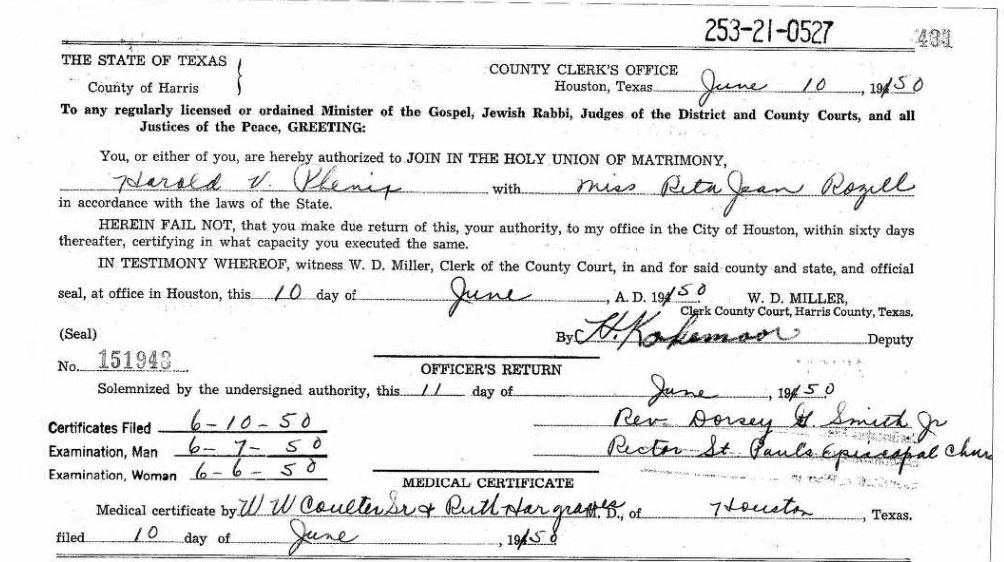 253-21-0527
433
THE STATE OF TEXAS
County of Harris
COUNTY CLERK'S OFFICE
Houston, Texas June 10, 1950
To any regularly licensed or ordained Minister of the Gospel, Jewish Rabbi, Judges of the District and County Courts, and all
Justices of the Peace, GREETING:
You, or either of you, are hereby authorized to JOIN IN THE HOLY UNION OF MATRIMONY,
Harold V. Phenix with Miss Reta Jean Rozell
in accordance with the laws of the State.
HEREIN FAIL NOT, that you make due return of this, your authority, to my office in the City of Houston, within sixty days
thereafter, certifying in what capacity you executed the same.
IN TESTIMONY WHEREOF, witness W. D. Miller, Clerk of the County Court, in and for said county and state, and official
seal, at office in Houston, this 10 day of June, A. D. 1950 W. D. MILLER,
Clerk County Court, Harris County, Texas.
(Seal) By H. Kokemoor Deputy
No. 151943
OFFICER'S RETURN
Solemnized by the undersigned authority, this 11 day of June, 1950
Certificates Filed 6-10-50 Rev. Dorsey G. Smith Jr
Examination, Man 6-7-50 Rector St. Pauls Episcopal Church
Examination, Woman 6-6-50
MEDICAL CERTIFICATE
Medical certificate by W W Coulter Sr & Ruth Hargraves M. D., of Houston, Texas.
filed 10 day of June, 1950